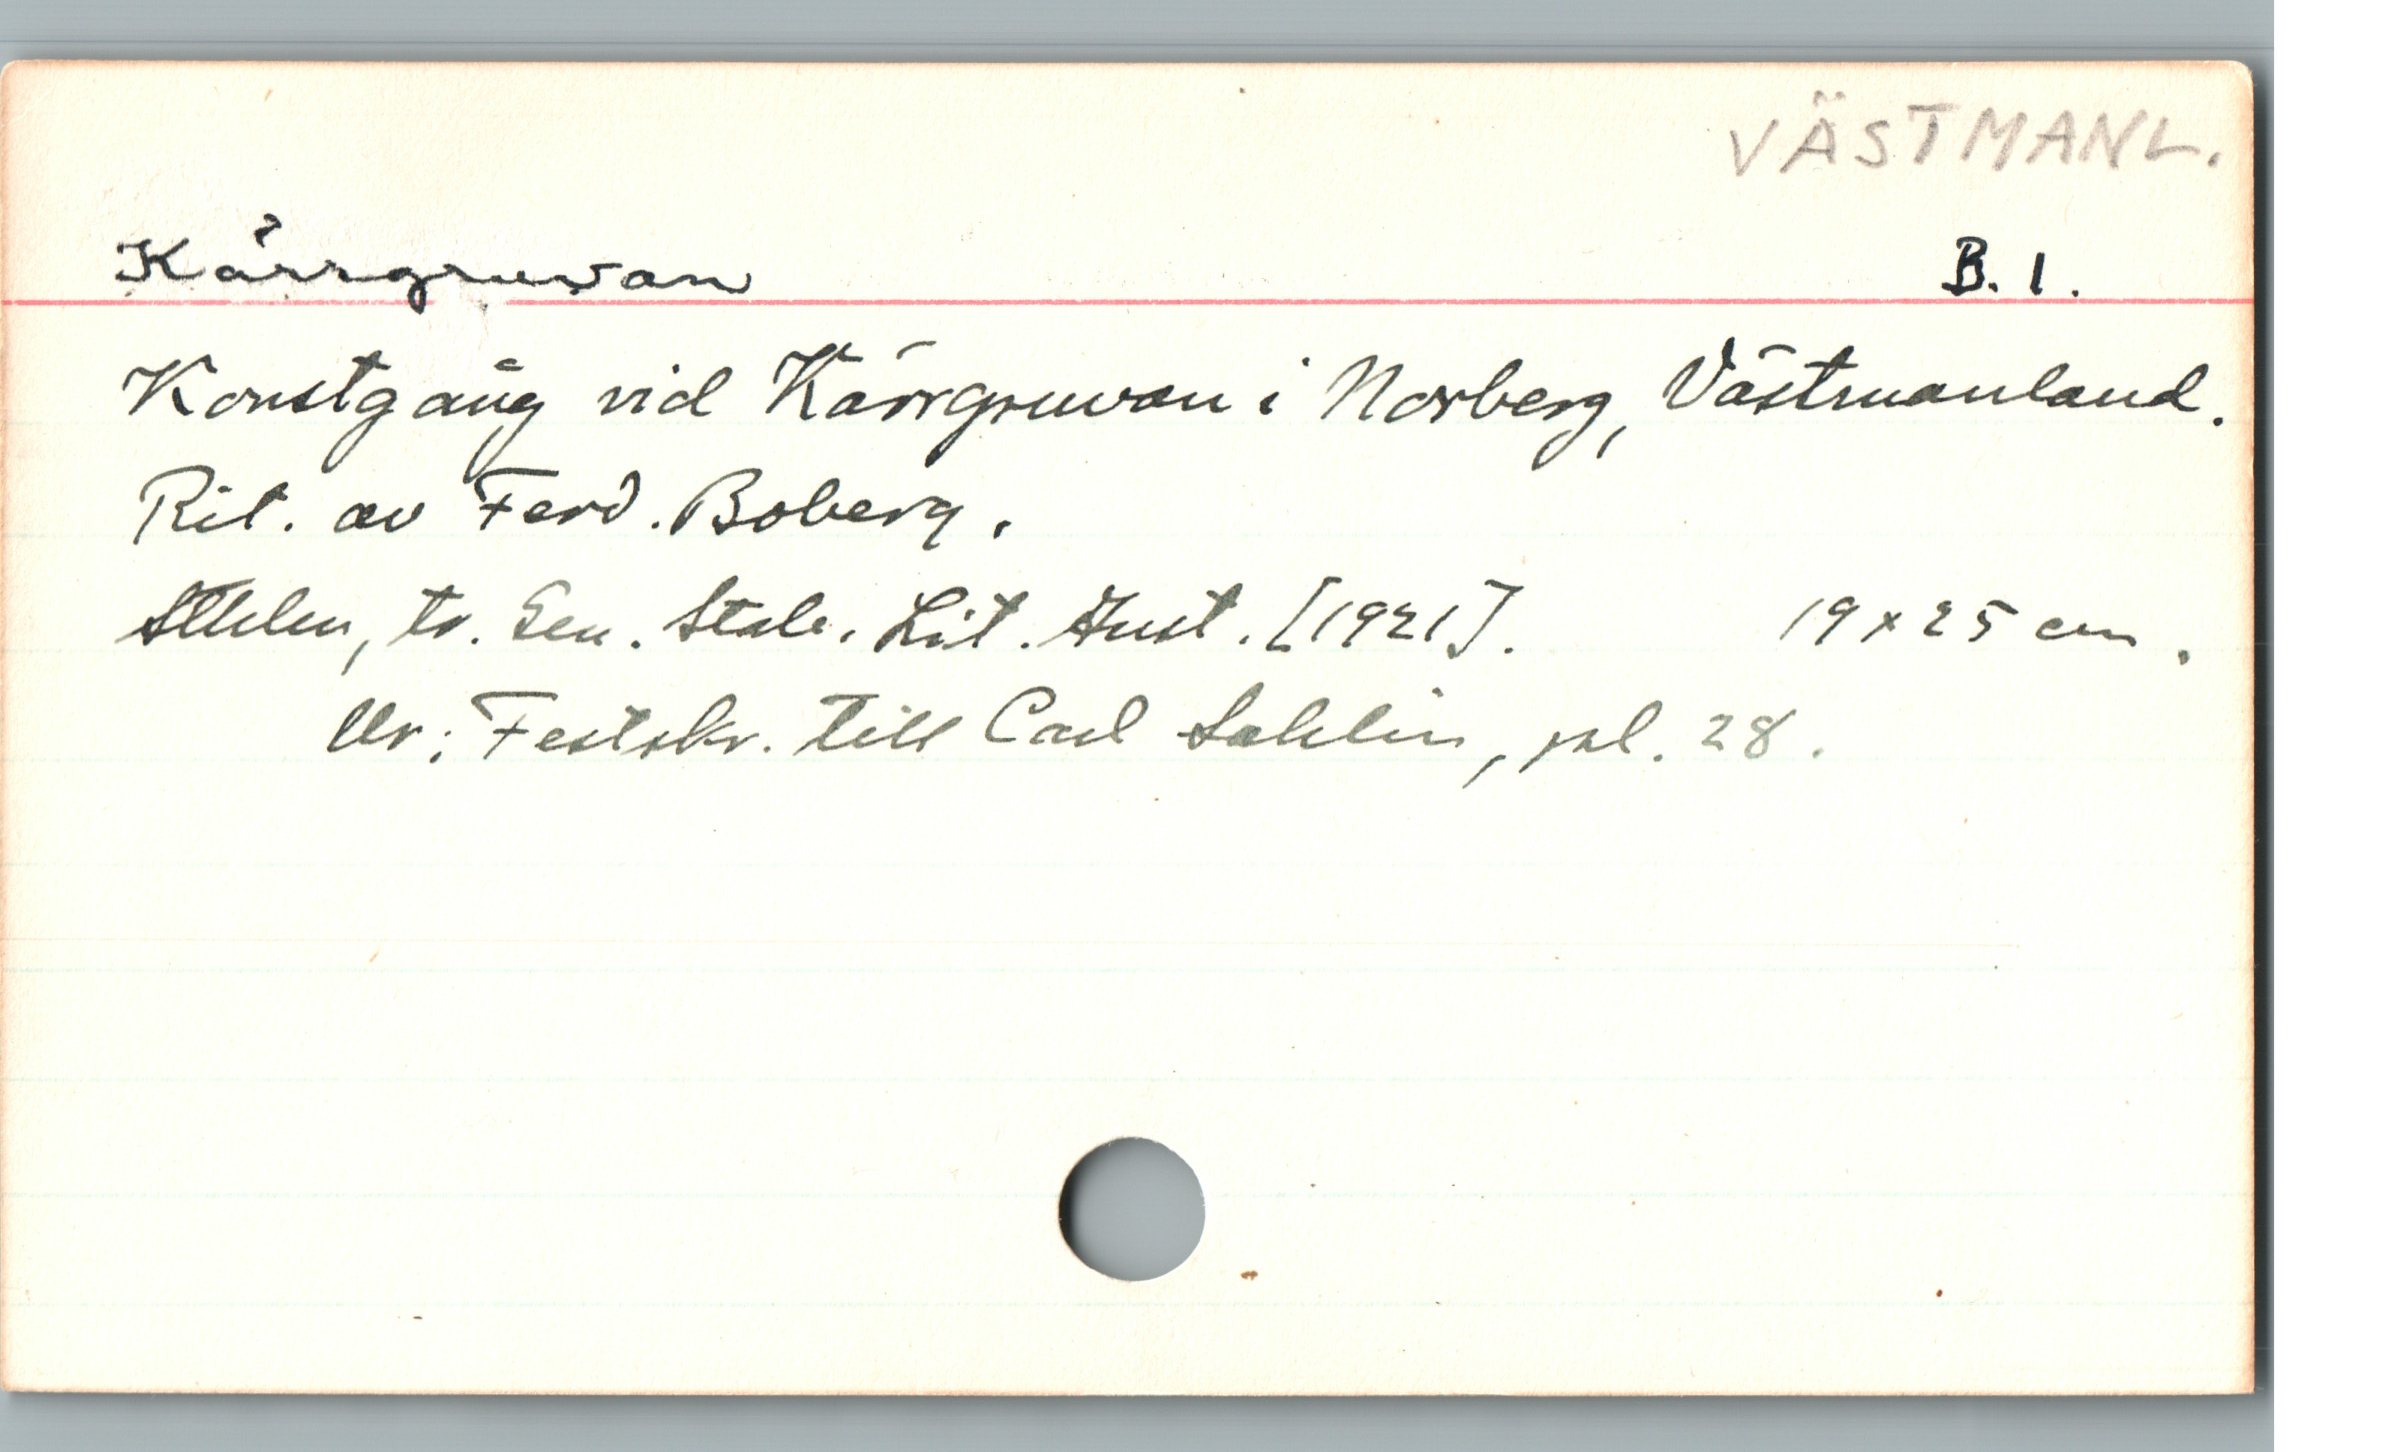 VÄSTMANL.
Kärrgruvan B. 1.
Konstgång vid Kärrgruvan i Norberg, Västmanland.
Rit. av Ferd. Boberg.
Sthlm, tr. Gen. Stab. Lit. Anst. [1921]. 19 x 25 cm.
Ur: Festskr. till Carl Sahlin, pl. 28.